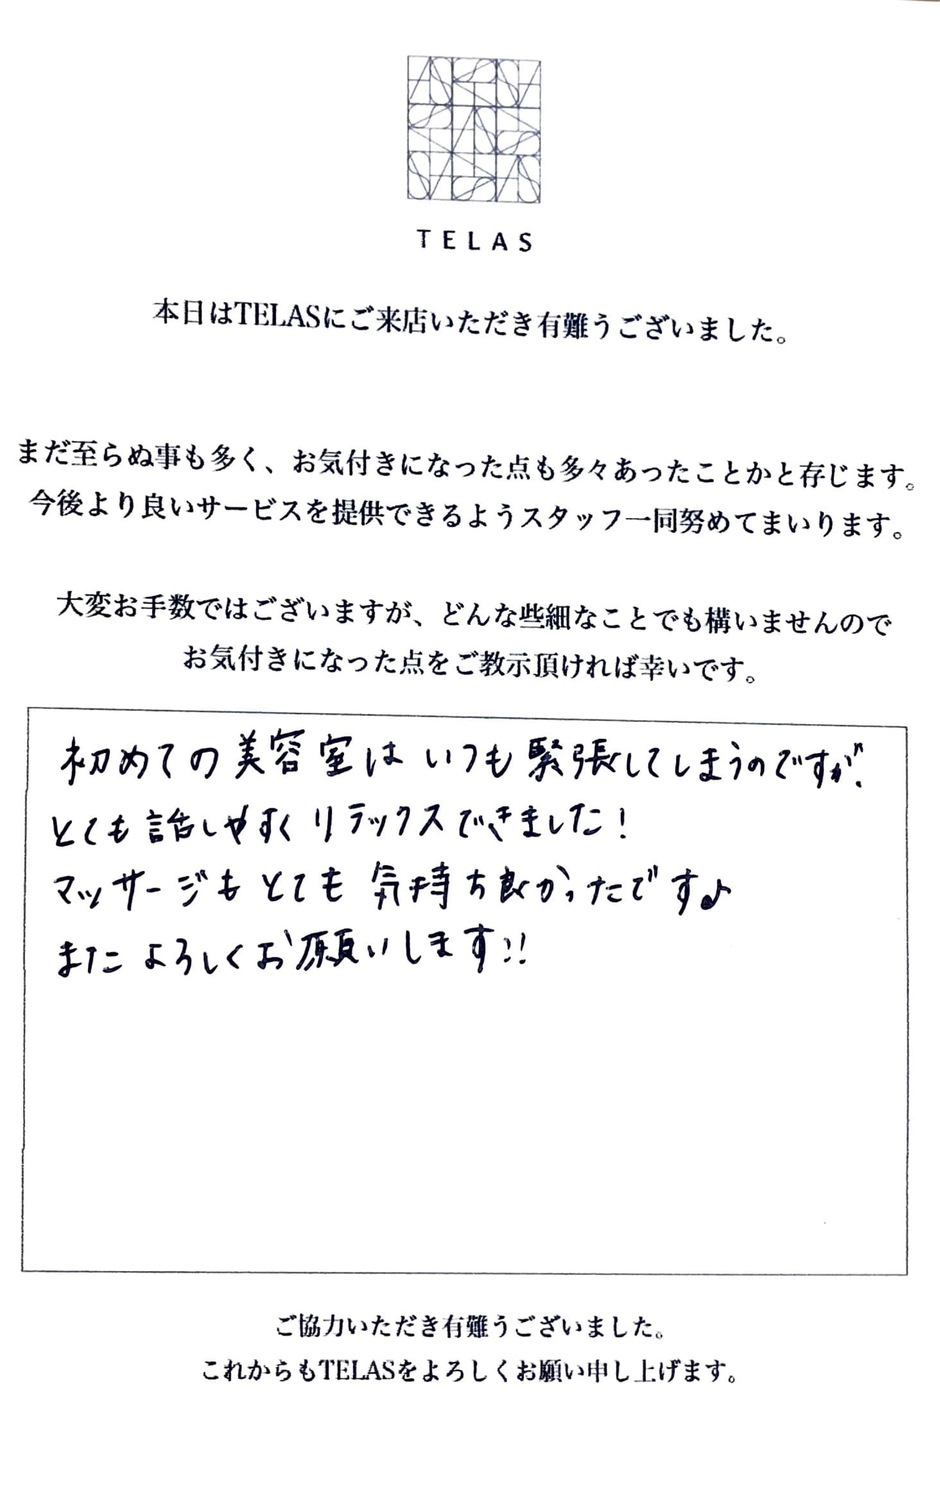 TELAS
本日はTELASにご来店いただき有難うございました。
まだ至らぬ事も多く、お気付きになった点も多々あったことかと存じます。
今後より良いサービスを提供できるようスタッフ一同努めてまいります。
大変お手数ではございますが、どんな些細なことでも構いませんので
お気付きになった点をご教示頂ければ幸いです。
初めての美容室はいつも緊張してしまうのですが、
とても話しやすくリラックスできました!
マッサージもとても気持ち良かったです♪
またよろしくお願いします!!
ご協力いただき有難うございました。
これからもTELASをよろしくお願い申し上げます。